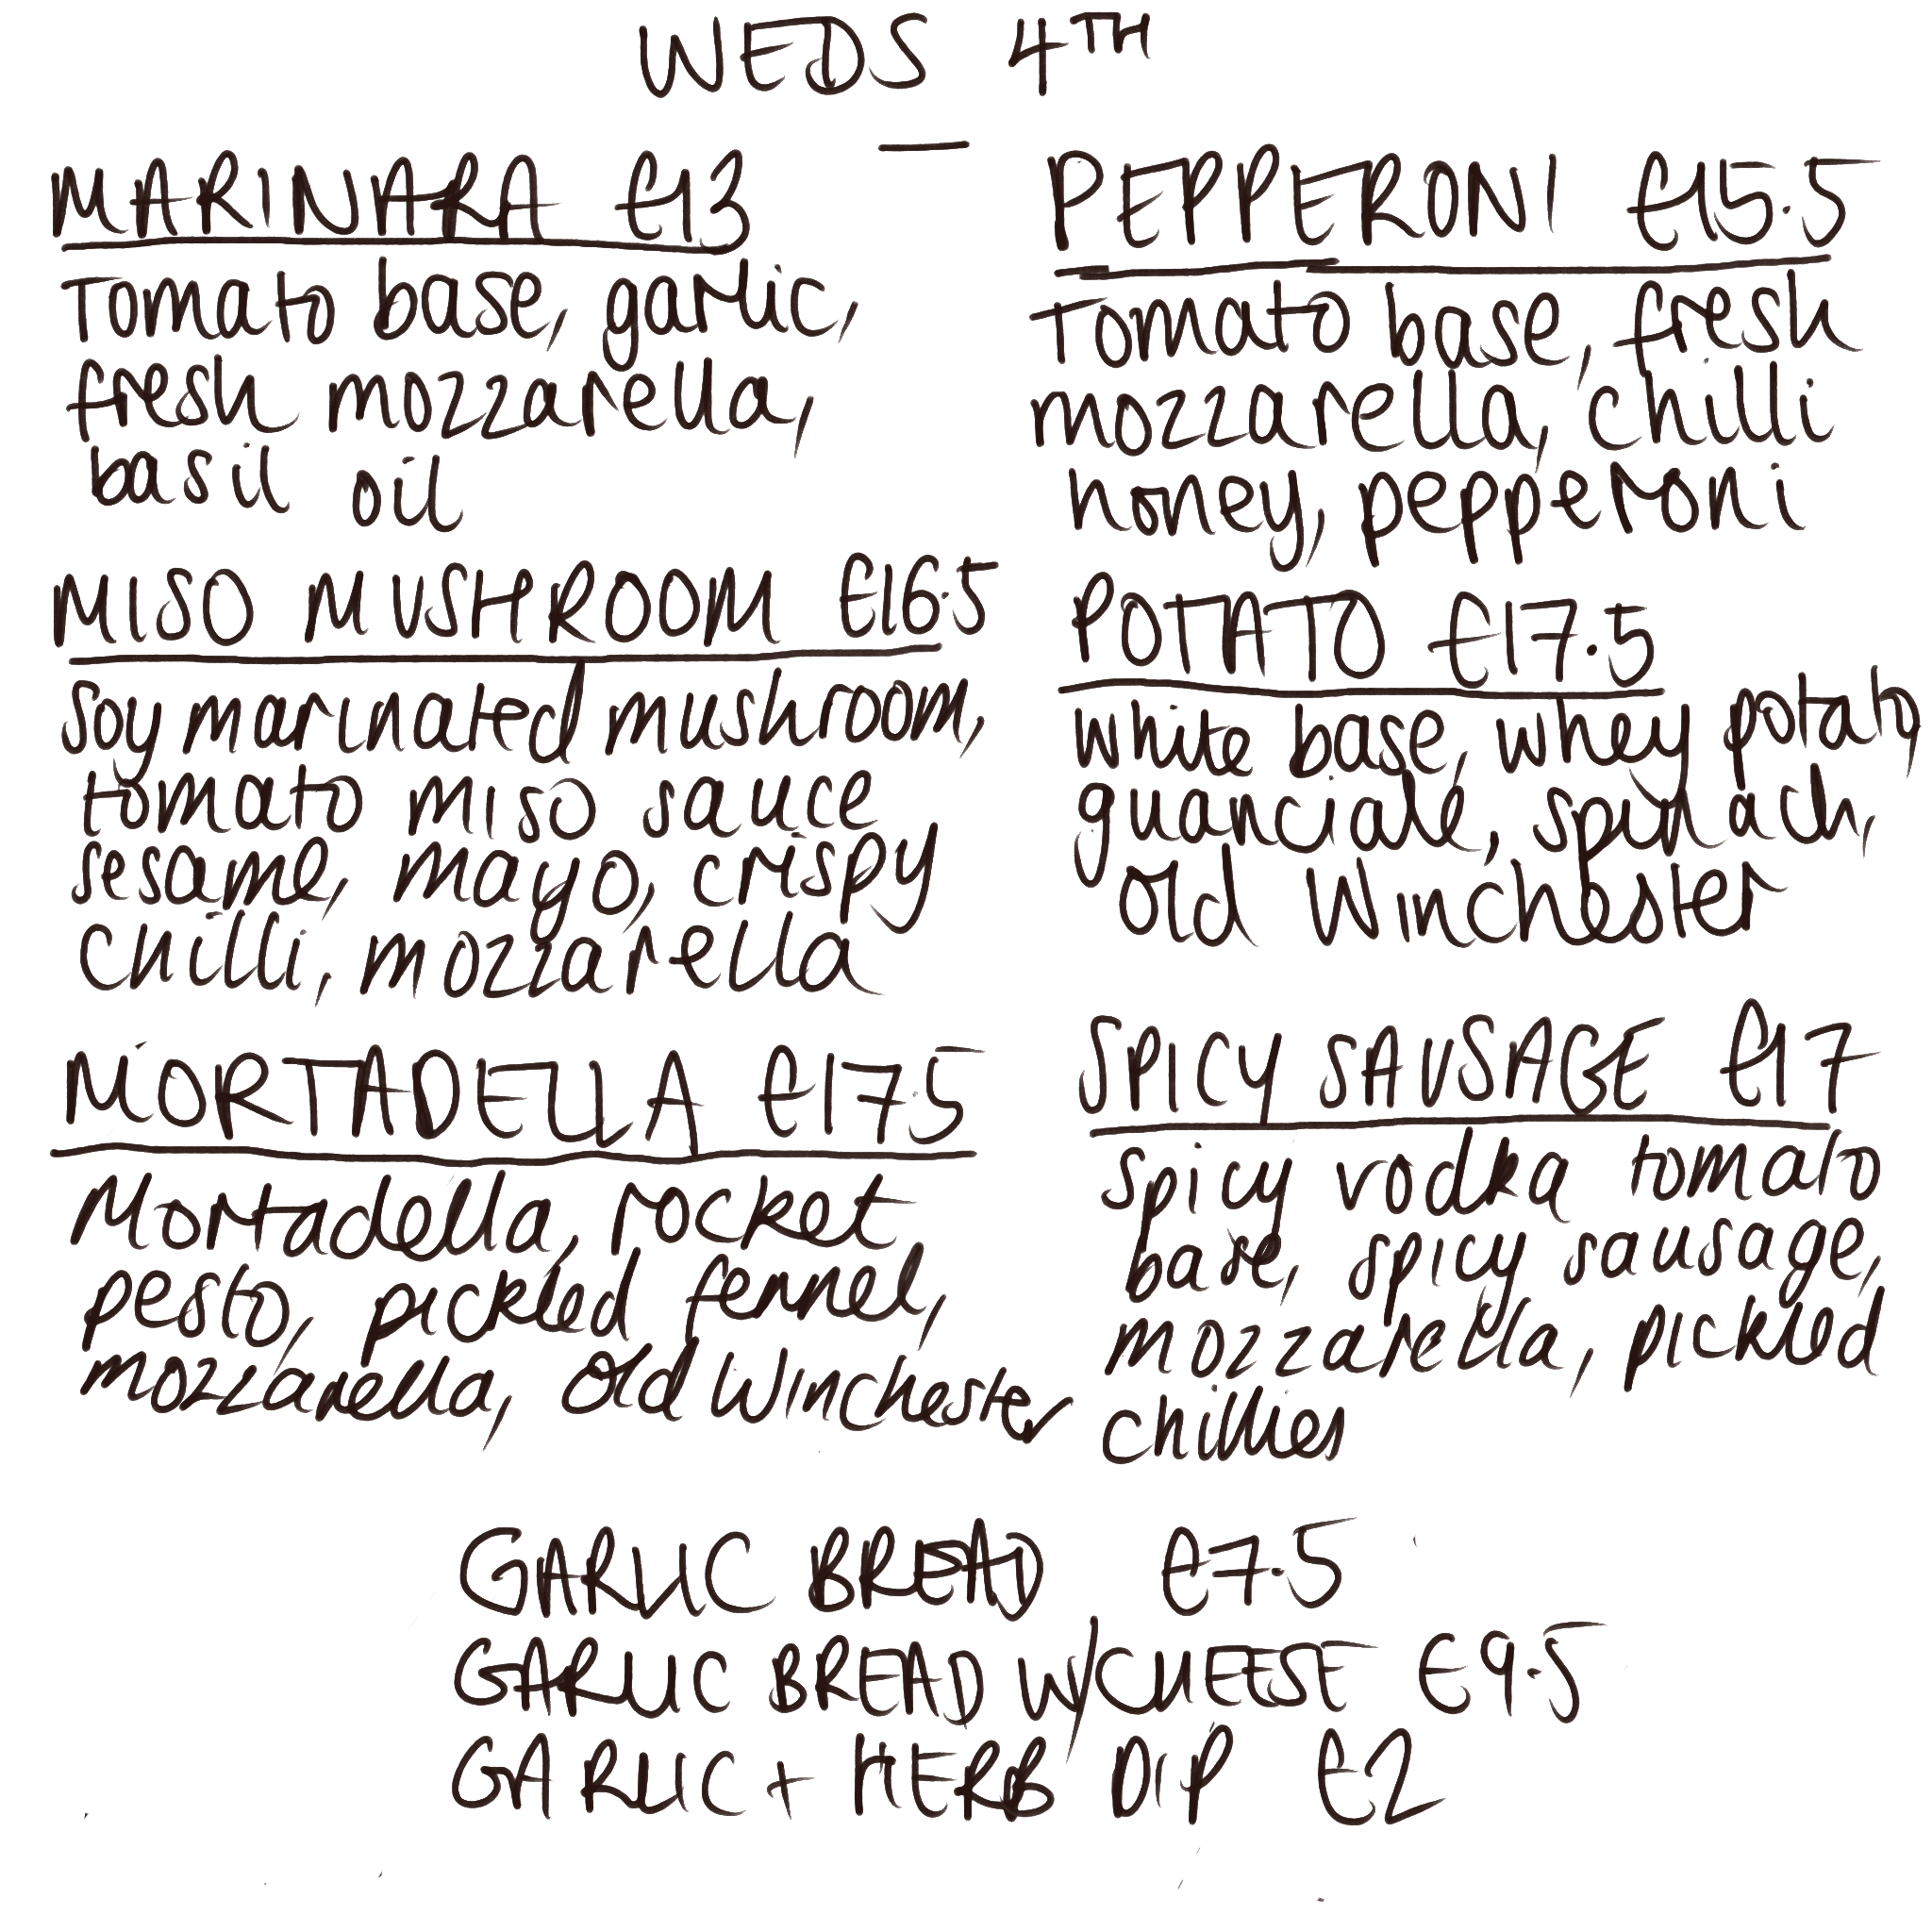 WEDS 4TH
MARINARA £13
Tomato base, garlic,
fresh mozzarella,
basil oil
MISO MUSHROOM £16.5
Soy marinated mushroom,
tomato miso sauce
sesame, mayo, crispy
chilli, mozzarella
MORTADELLA £17.5
Mortadella, rocket
pesto, pickled fennel,
mozzarella, Old Winchester
PEPPERONI £15.5
Tomato base, fresh
mozzarella, chilli
honey, pepperoni
POTATO £17.5
White base, whey potato
guanciale, spinach,
Old Winchester
SPICY SAUSAGE £17
Spicy vodka tomato
base, spicy sausage,
mozzarella, pickled
chillies
GARLIC BREAD £7.5
GARLIC BREAD W/CHEESE £9.5
GARLIC + HERB DIP £2